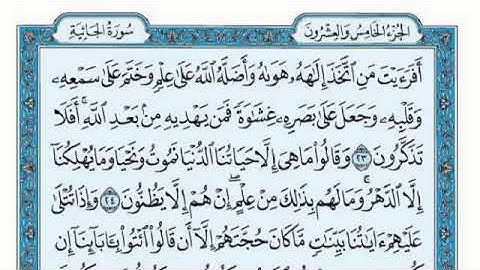 الجزء الخامس والعشرون
سورة الجاثية
أَفَرَءَيْتَ مَنِ ٱتَّخَذَ إِلَٰهَهُۥ هَوَىٰهُ وَأَضَلَّهُ ٱللَّهُ عَلَىٰ عِلْمٍ وَخَتَمَ عَلَىٰ سَمْعِهِۦ
وَقَلْبِهِۦ وَجَعَلَ عَلَىٰ بَصَرِهِۦ غِشَٰوَةً فَمَن يَهْدِيهِ مِنۢ بَعْدِ ٱللَّهِ ۚ أَفَلَا
تَذَكَّرُونَ ٢٣ وَقَالُوا۟ مَا هِىَ إِلَّا حَيَاتُنَا ٱلدُّنْيَا نَمُوتُ وَنَحْيَا وَمَا يُهْلِكُنَآ
إِلَّا ٱلدَّهْرُ ۚ وَمَا لَهُم بِذَٰلِكَ مِنْ عِلْمٍ ۖ إِنْ هُمْ إِلَّا يَظُنُّونَ ٢٤ وَإِذَا تُتْلَىٰ
عَلَيْهِمْ ءَايَٰتُنَا بَيِّنَٰتٍ مَّا كَانَ حُجَّتَهُمْ إِلَّآ أَن قَالُوا۟ ٱئْتُوا۟ بِـَٔابَآئِنَآ إِن